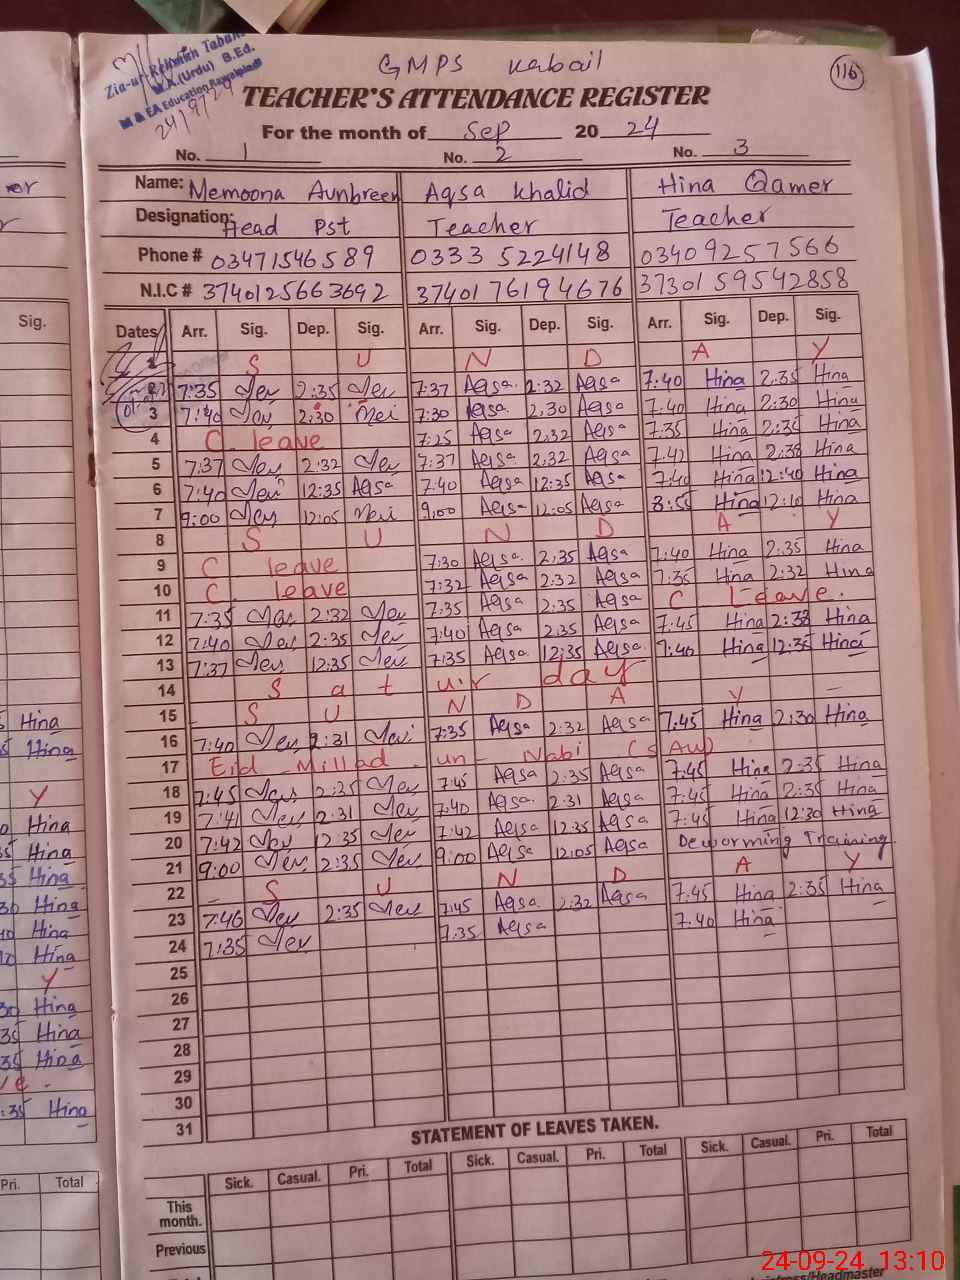 GMPS Kabail
116
Zia-ur-Rehman Tabani
M.A.(Urdu) B.Ed.
M & EA Education Rawalpindi
24/9/24
TEACHER'S ATTENDANCE REGISTER
For the month of Sep 20 24
No. 1 No. 2 No. 3
Name: Memoona Aunbreen Aqsa Khalid Hina Qamer
Designation: Head Pst Teacher Teacher
Phone # 03471546589 0333 5224148 0340 9257566
N.I.C # 3740125663692 3740176194676 37301 59542858
Dates Arr. Sig. Dep. Sig. Arr. Sig. Dep. Sig. Arr. Sig. Dep. Sig.
1 S U N D A Y
2 7:35 2:35 7:37 Aqsa 2:32 Aqsa 7:40 Hina 2:35 Hina
3 7:40 2:30 7:30 Aqsa 2:30 Aqsa 7:40 Hina 2:30 Hina
4 C. leave 7:25 Aqsa 2:32 Aqsa 7:35 Hina 2:35 Hina
5 7:37 2:32 7:37 Aqsa 2:32 Aqsa 7:42 Hina 2:38 Hina
6 7:40 12:35 Aqsa 7:40 Aqsa 12:35 Aqsa 7:40 Hina 12:40 Hina
7 9:00 12:05 9:00 Aqsa 12:05 Aqsa 8:55 Hina 12:10 Hina
8 S U N D A Y
9 C. leave 7:30 Aqsa 2:35 Aqsa 7:40 Hina 2:35 Hina
10 C. leave 7:32 Aqsa 2:32 Aqsa 7:35 Hina 2:32 Hina
11 7:35 2:32 7:35 Aqsa 2:35 Aqsa C Leave.
12 7:40 2:35 7:40 Aqsa 2:35 Aqsa 7:45 Hina 2:38 Hina
13 7:37 12:35 7:35 Aqsa 12:35 Aqsa 7:40 Hina 12:35 Hina
14 S a t u r day
15 S U N D A Y
16 7:40 2:31 7:35 Aqsa 2:32 Aqsa 7:45 Hina 2:30 Hina
17 Eid Millad un- Nabi (SAW)
18 7:45 2:35 7:45 Aqsa 2:35 Aqsa 7:45 Hina 2:35 Hina
19 7:41 2:31 7:40 Aqsa 2:31 Aqsa 7:45 Hina 2:35 Hina
20 7:42 12:35 7:42 Aqsa 12:35 Aqsa 7:45 Hina 12:30 Hina
21 9:00 2:35 9:00 Aqsa 12:05 Aqsa Deworming Training
22 S U N D A Y
23 7:46 2:35 7:45 Aqsa 2:32 Aqsa 7:45 Hina 2:35 Hina
24 7:35 7:35 Aqsa 7:40 Hina
25
26
27
28
29
30
31
STATEMENT OF LEAVES TAKEN.
Sick. Casual. Pri. Total Sick. Casual. Pri. Total Sick. Casual. Pri. Total
This month.
Previous
Sig.
Hina
Hina
Y
Hina
Hina
Hina
Hina
Hina
Hina
Y
Hina
Hina
Hina
:35 Hina
Pri. Total
24-09-24 13:10
/Headmaster